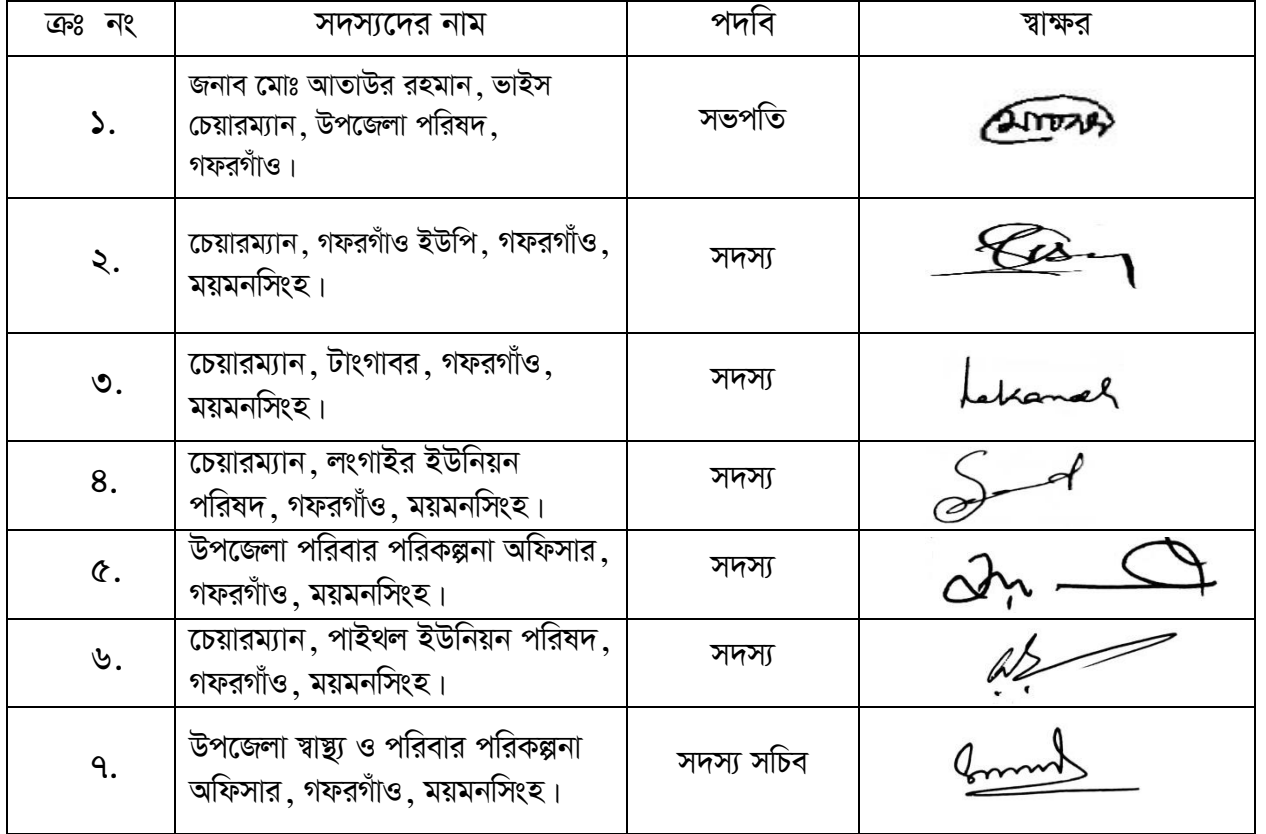 ক্রঃ নং সদস্যদের নাম পদবি স্বাক্ষর
১. জনাব মোঃ আতাউর রহমান, ভাইস
চেয়ারম্যান, উপজেলা পরিষদ,
গফরগাঁও। সভপতি
২. চেয়ারম্যান, গফরগাঁও ইউপি, গফরগাঁও,
ময়মনসিংহ। সদস্য
৩. চেয়ারম্যান, টাংগাবর, গফরগাঁও,
ময়মনসিংহ। সদস্য
৪. চেয়ারম্যান, লংগাইর ইউনিয়ন
পরিষদ, গফরগাঁও, ময়মনসিংহ। সদস্য
৫. উপজেলা পরিবার পরিকল্পনা অফিসার,
গফরগাঁও, ময়মনসিংহ। সদস্য
৬. চেয়ারম্যান, পাইথল ইউনিয়ন পরিষদ,
গফরগাঁও, ময়মনসিংহ। সদস্য
৭. উপজেলা স্বাস্থ্য ও পরিবার পরিকল্পনা
অফিসার, গফরগাঁও, ময়মনসিংহ। সদস্য সচিব